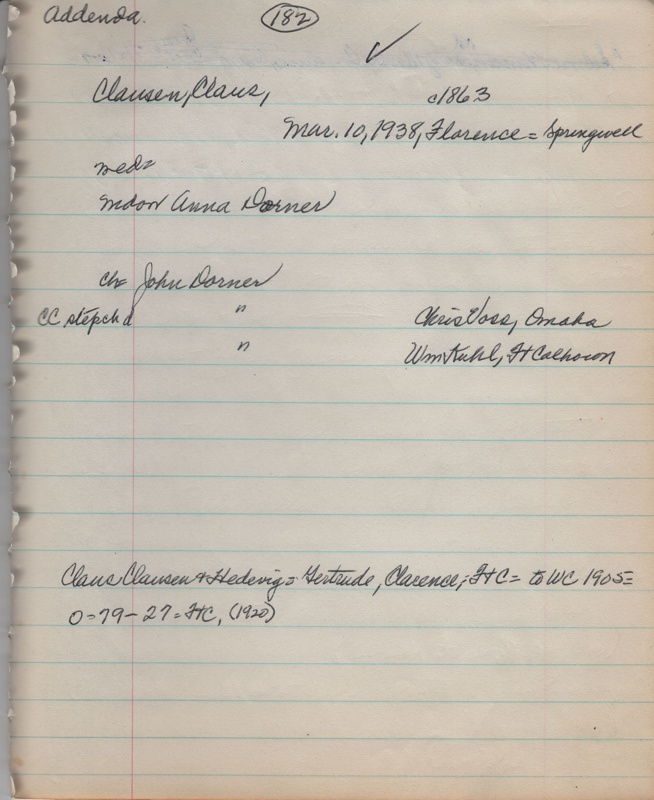 Addenda. 182
Clausen, Claus, c1863
Mar. 10, 1938, Florence = Springwell
med=
mdow Anna Dorner
ch= John Dorner
CC stepch d " Chris Voss, Omaha
" Wm Kuhl, Ft Calhoun
Claus Clausen + Hedevig = Gertrude, Clarence; FtC = to WC 1905=
0-79-27 = FtC, (1920)